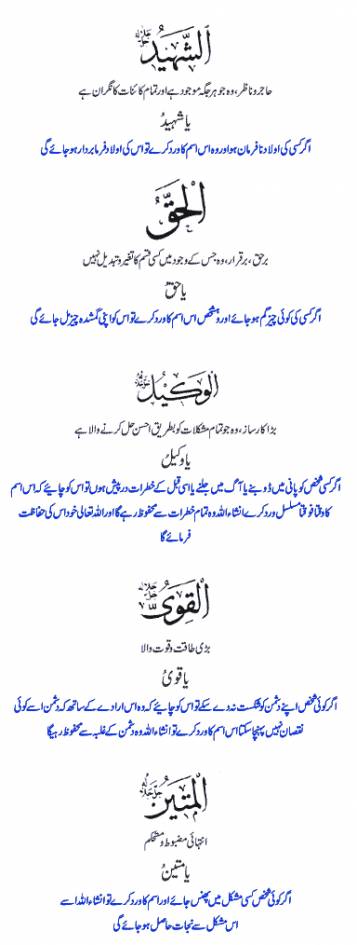 الشَّهِيدُ جل جلالہ
حاضر و ناظر، وہ جو ہر جگہ موجود ہے اور تمام کائنات کا نگران ہے
یا شہیدُ
اگر کسی کی اولاد نافرمان ہو اور وہ اس اسم کا ورد کرے تو اس کی اولاد فرمابردار ہو جائے گی
الْحَقُّ
برحق، برقرار، وہ جس کے وجود میں کسی قسم کا تغیر و تبدیل نہیں
یا حقُ
اگر کسی کی کوئی چیز گم ہو جائے اور وہ شخص اس اسم کا ورد کرے تو اس کو اپنی گمشدہ چیز مل جائے گی
الْوَكِيْلُ جل جلالہ
بڑا کارساز، وہ جو تمام مشکلات کو بطریق احسن حل کرنے والا ہے
یا وکیلُ
اگر کسی شخص کو پانی میں ڈوبنے یا آگ میں جلنے یا اسی قبل کے خطرات درپیش ہوں تو اس کو چاہئے کہ اس اسم
کا وقتا فوقتا مسلسل ورد کرے انشاء اللہ وہ تمام خطرات سے محفوظ رہے گا اور اللہ تعالی خود اس کی حفاظت
فرمائے گا
الْقَوِىُّ جل جلالہ
بڑی طاقت و قوت والا
یا قویُ
اگر کوئی شخص اپنے دشمن کو شکست نہ دے سکے تو اس کو چاہیے کہ وہ اس ارادے کے ساتھ کہ دشمن اسے کوئی
نقصان نہیں پہنچا سکتا اس اسم کا ورد کرے تو انشاء اللہ وہ دشمن کے غلبہ سے محفوظ رہیگا
الْمَتِينُ جل جلالہ
انتہائی مضبوط و مستحکم
یا متینُ
اگر کوئی شخص کسی مشکل میں پھنس جائے اور اسم کا ورد کرے تو انشاء اللہ اسے
اس مشکل سے نجات حاصل ہو جائے گی